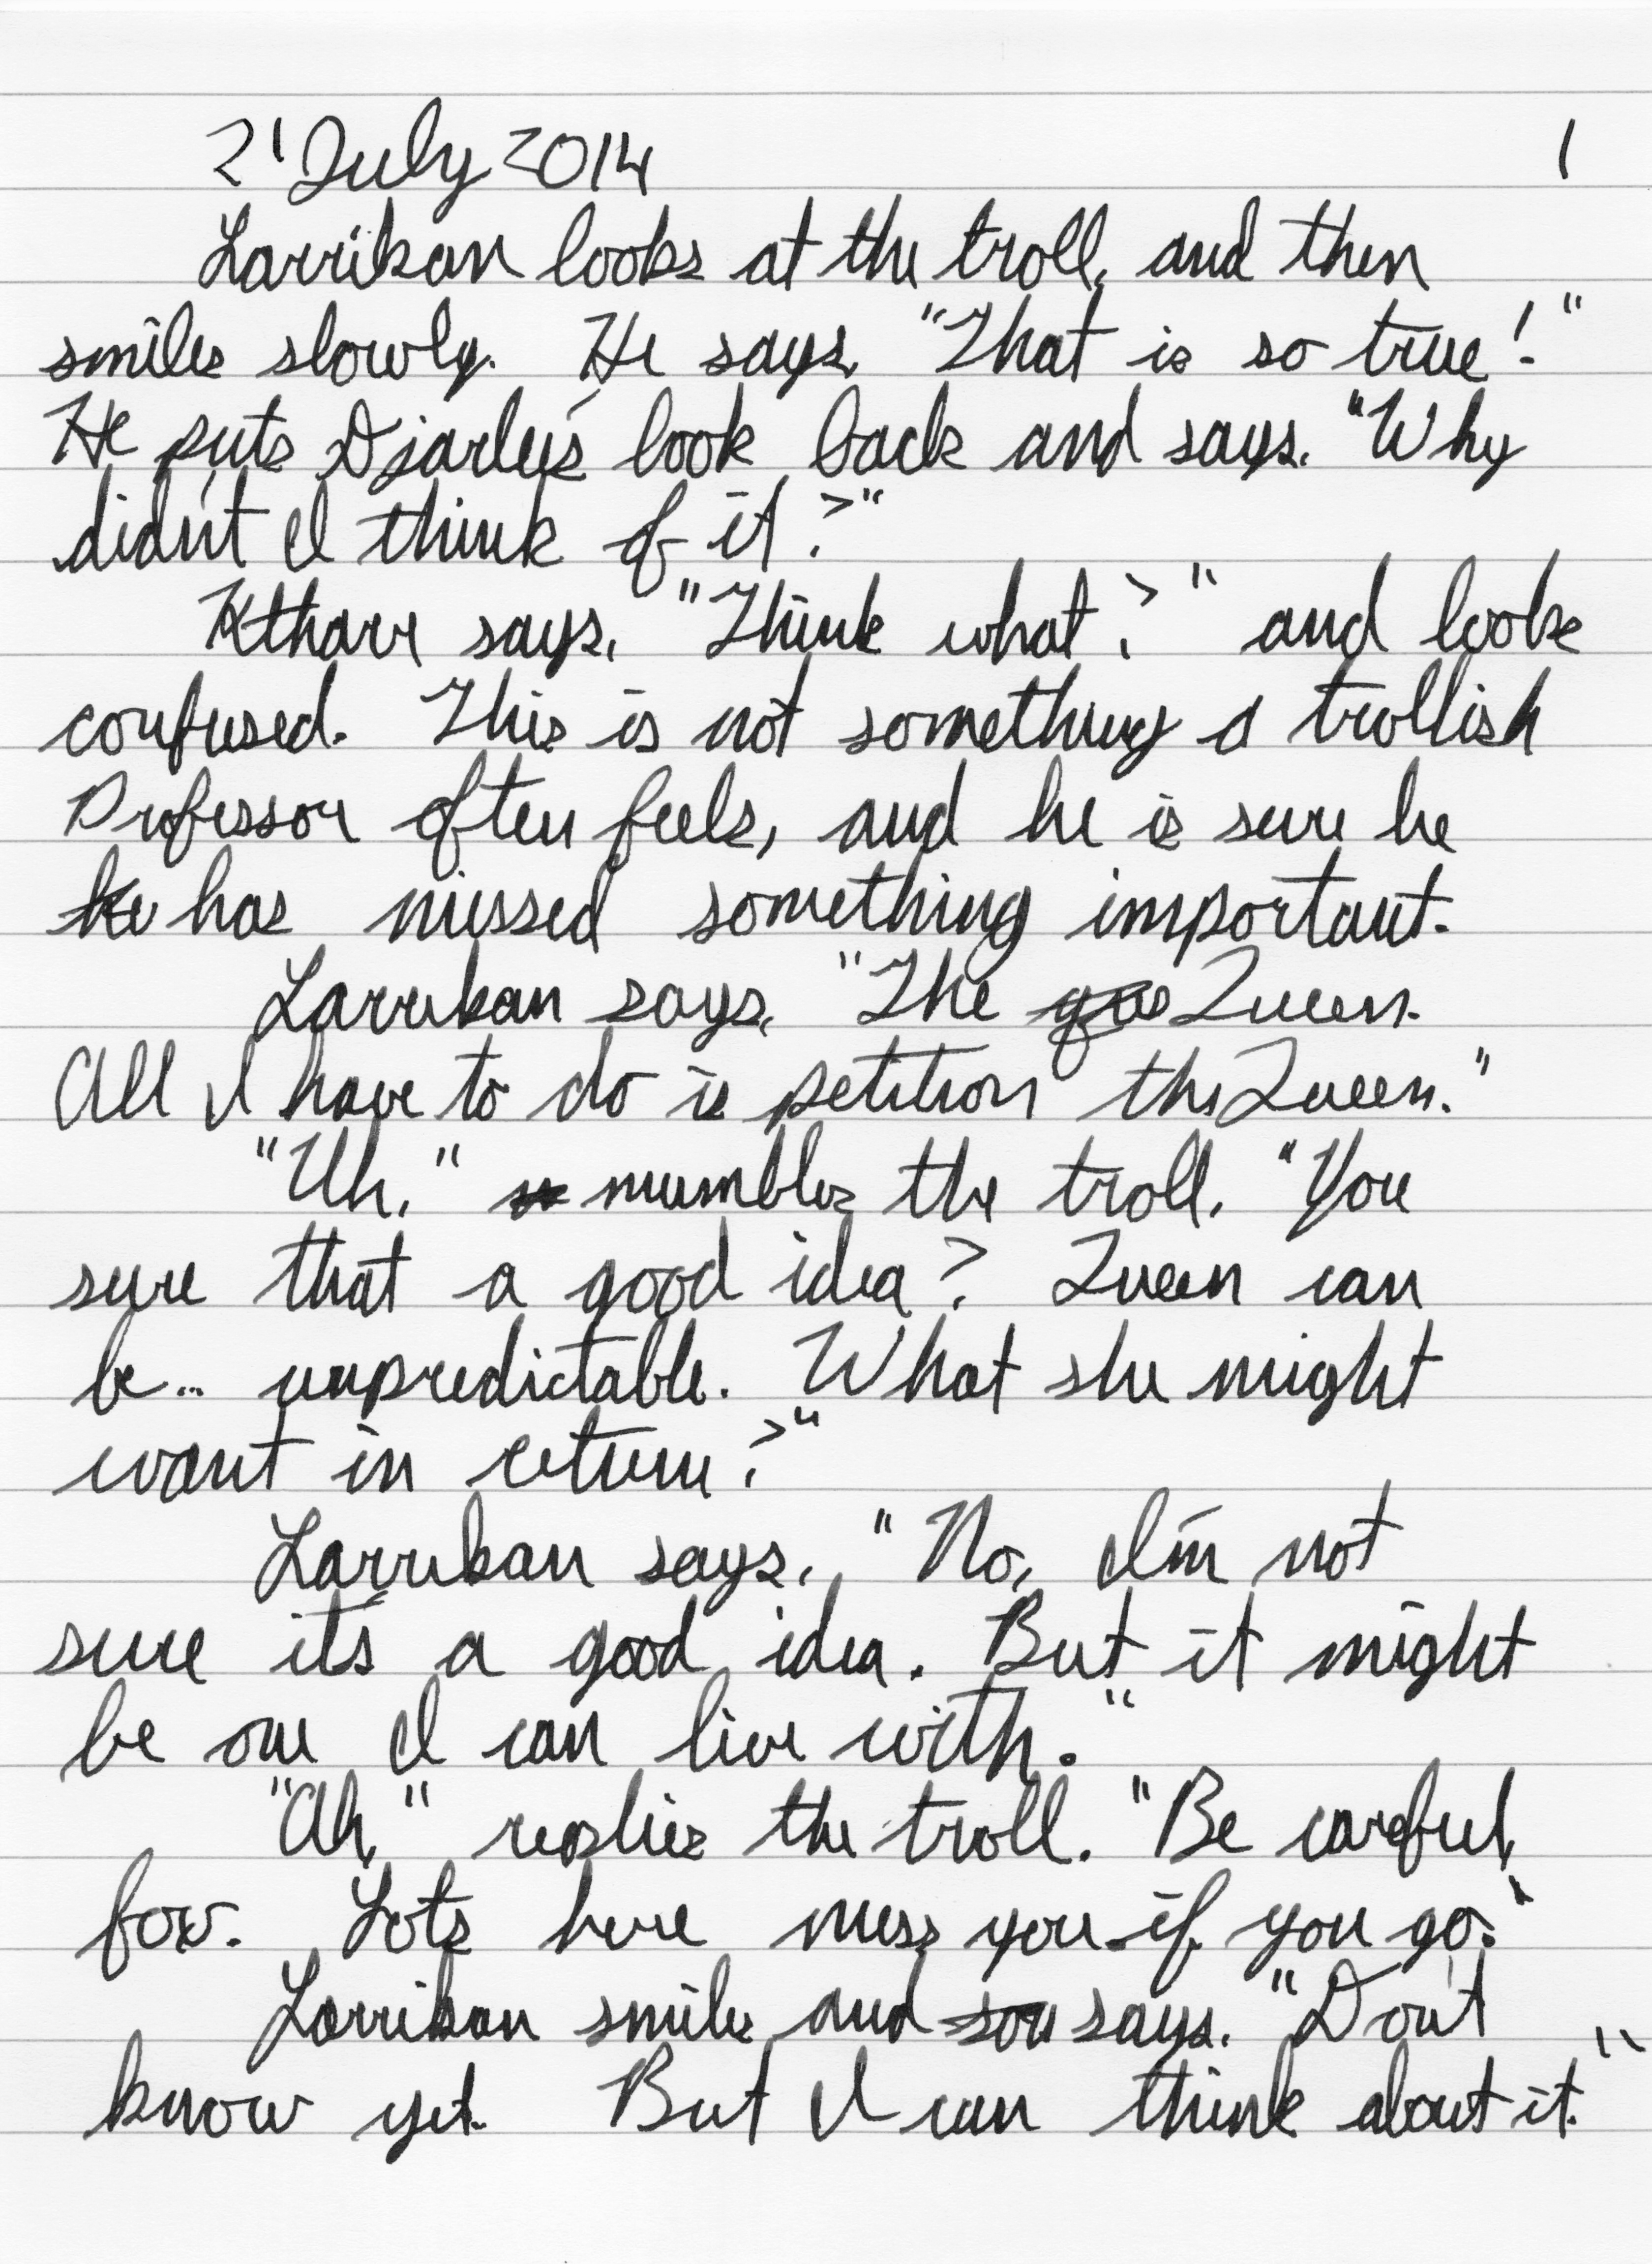 21 July 2014 1
Larrikan looks at the troll, and then
smiles slowly. He says, "That is so true!"
He puts Djarley's look back and says, "Why
didn't I think of it?"
Ktharr says, "Think what?" and looks
confused. This is not something a trollish
Professor often feels, and he is sure he
he has missed something important.
Larrikan says, "The Queen.
All I have to do is petition the Queen."
"Uh," mumbles the troll, "You
sure that a good idea? Queen can
be... unpredictable. What she might
want in return?"
Larrikan says, "No, I'm not
sure it's a good idea. But it might
be one I can live with."
"Ah," replies the troll. "Be careful,
fox. Lots here miss you if you go."
Larrikan smiles and says, "Don't
know yet. But I can think about it."